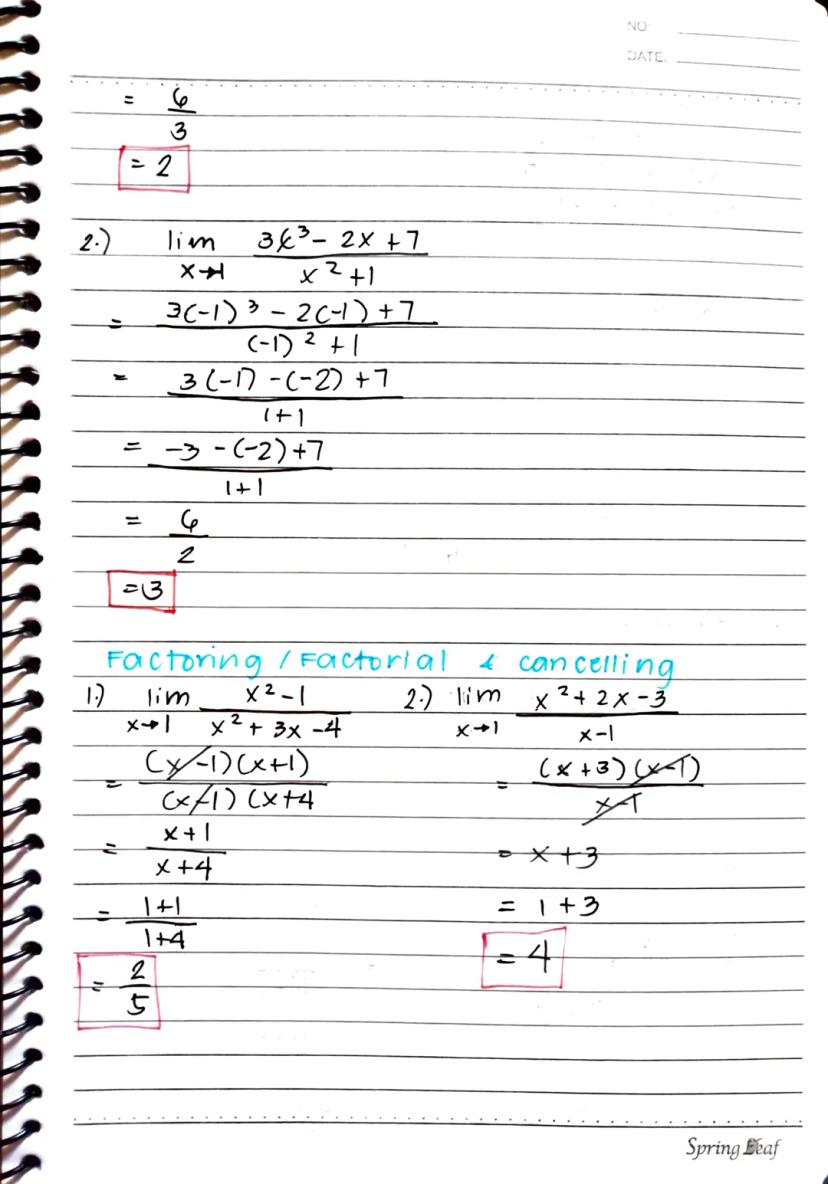 NO
DATE.
= 6/3
= 2
2.) lim x→1 3x³ - 2x + 7 / x² + 1
= 3(-1)³ - 2(-1) + 7 / (-1)² + 1
= 3(-1) - (-2) + 7 / 1+1
= -3 - (-2) + 7 / 1+1
= 6/2
= 3
Factoring / Factorial & cancelling
1.) lim x→1 x² - 1 / x² + 3x - 4
= (x-1)(x+1) / (x-1)(x+4
= x+1 / x+4
= 1+1 / 1+4
= 2/5
2.) lim x→1 x² + 2x - 3 / x-1
= (x+3)(x-1) / x-1
= x+3
= 1+3
= 4
Spring Leaf